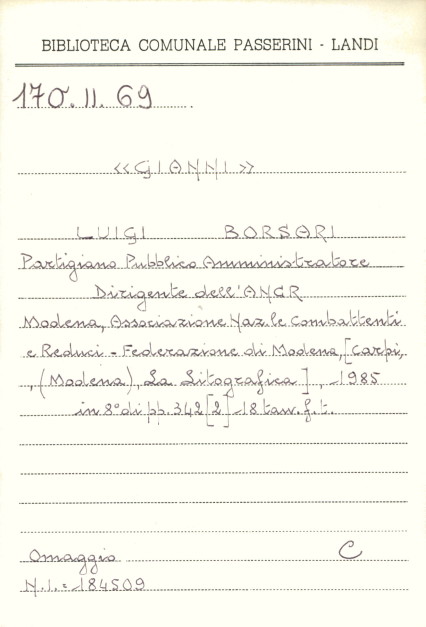 BIBLIOTECA COMUNALE PASSERINI - LANDI
170.II.69
<<GIANNI>>
LUIGI BORSARI
Partigiano Pubblico Amministratore
Dirigente dell'ANCR
Modena, Associazione Naz.le Combattenti
e Reduci - Federazione di Modena, [Carpi,
, (Modena), La Litografica], 1985
in 8° di pp. 342 [2] 18 tav. f. t.
Omaggio C
N.I. = 184509